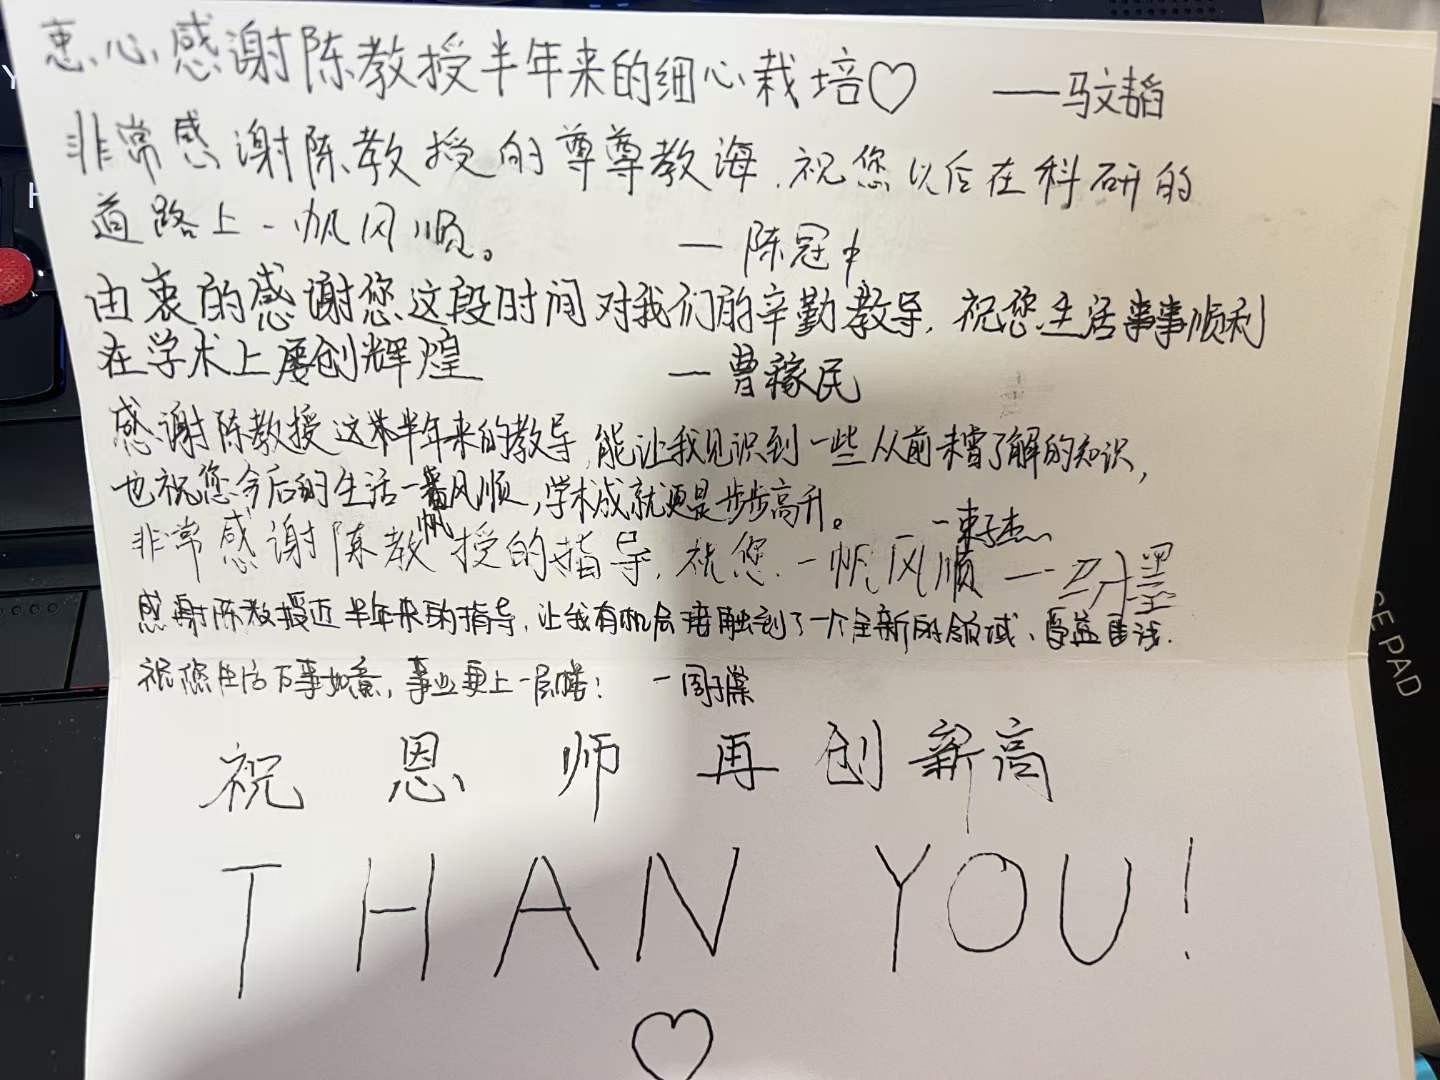 衷心感谢陈教授半年来的细心栽培♡ ——马文韬
非常感谢陈教授的尊尊教海,祝您以后在科研的
道路上一帆风顺。 —陈冠中
由衷的感谢您这段时间对我们的辛勤教导,祝您生活事事顺利
在学术上屡创辉煌 —曹稼民
感谢陈教授这半年来的教导,能让我见识到一些从前未曾了解的知识,
也祝您今后的生活一帆风顺,学术成就更是步步高升。
—束子杰
非常感谢陈教授的指导,祝您一帆风顺 —
感谢陈教授近半年来的指导,让我有机会接触到了一个全新的领域,受益匪浅.
祝您生活万事如意,事业更上一层楼! —周子棠
祝恩师再创新高
THAN YOU!
♡
PAD